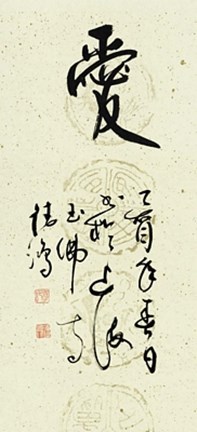 愛
乙酉年春日
書於上海
玉佛寺